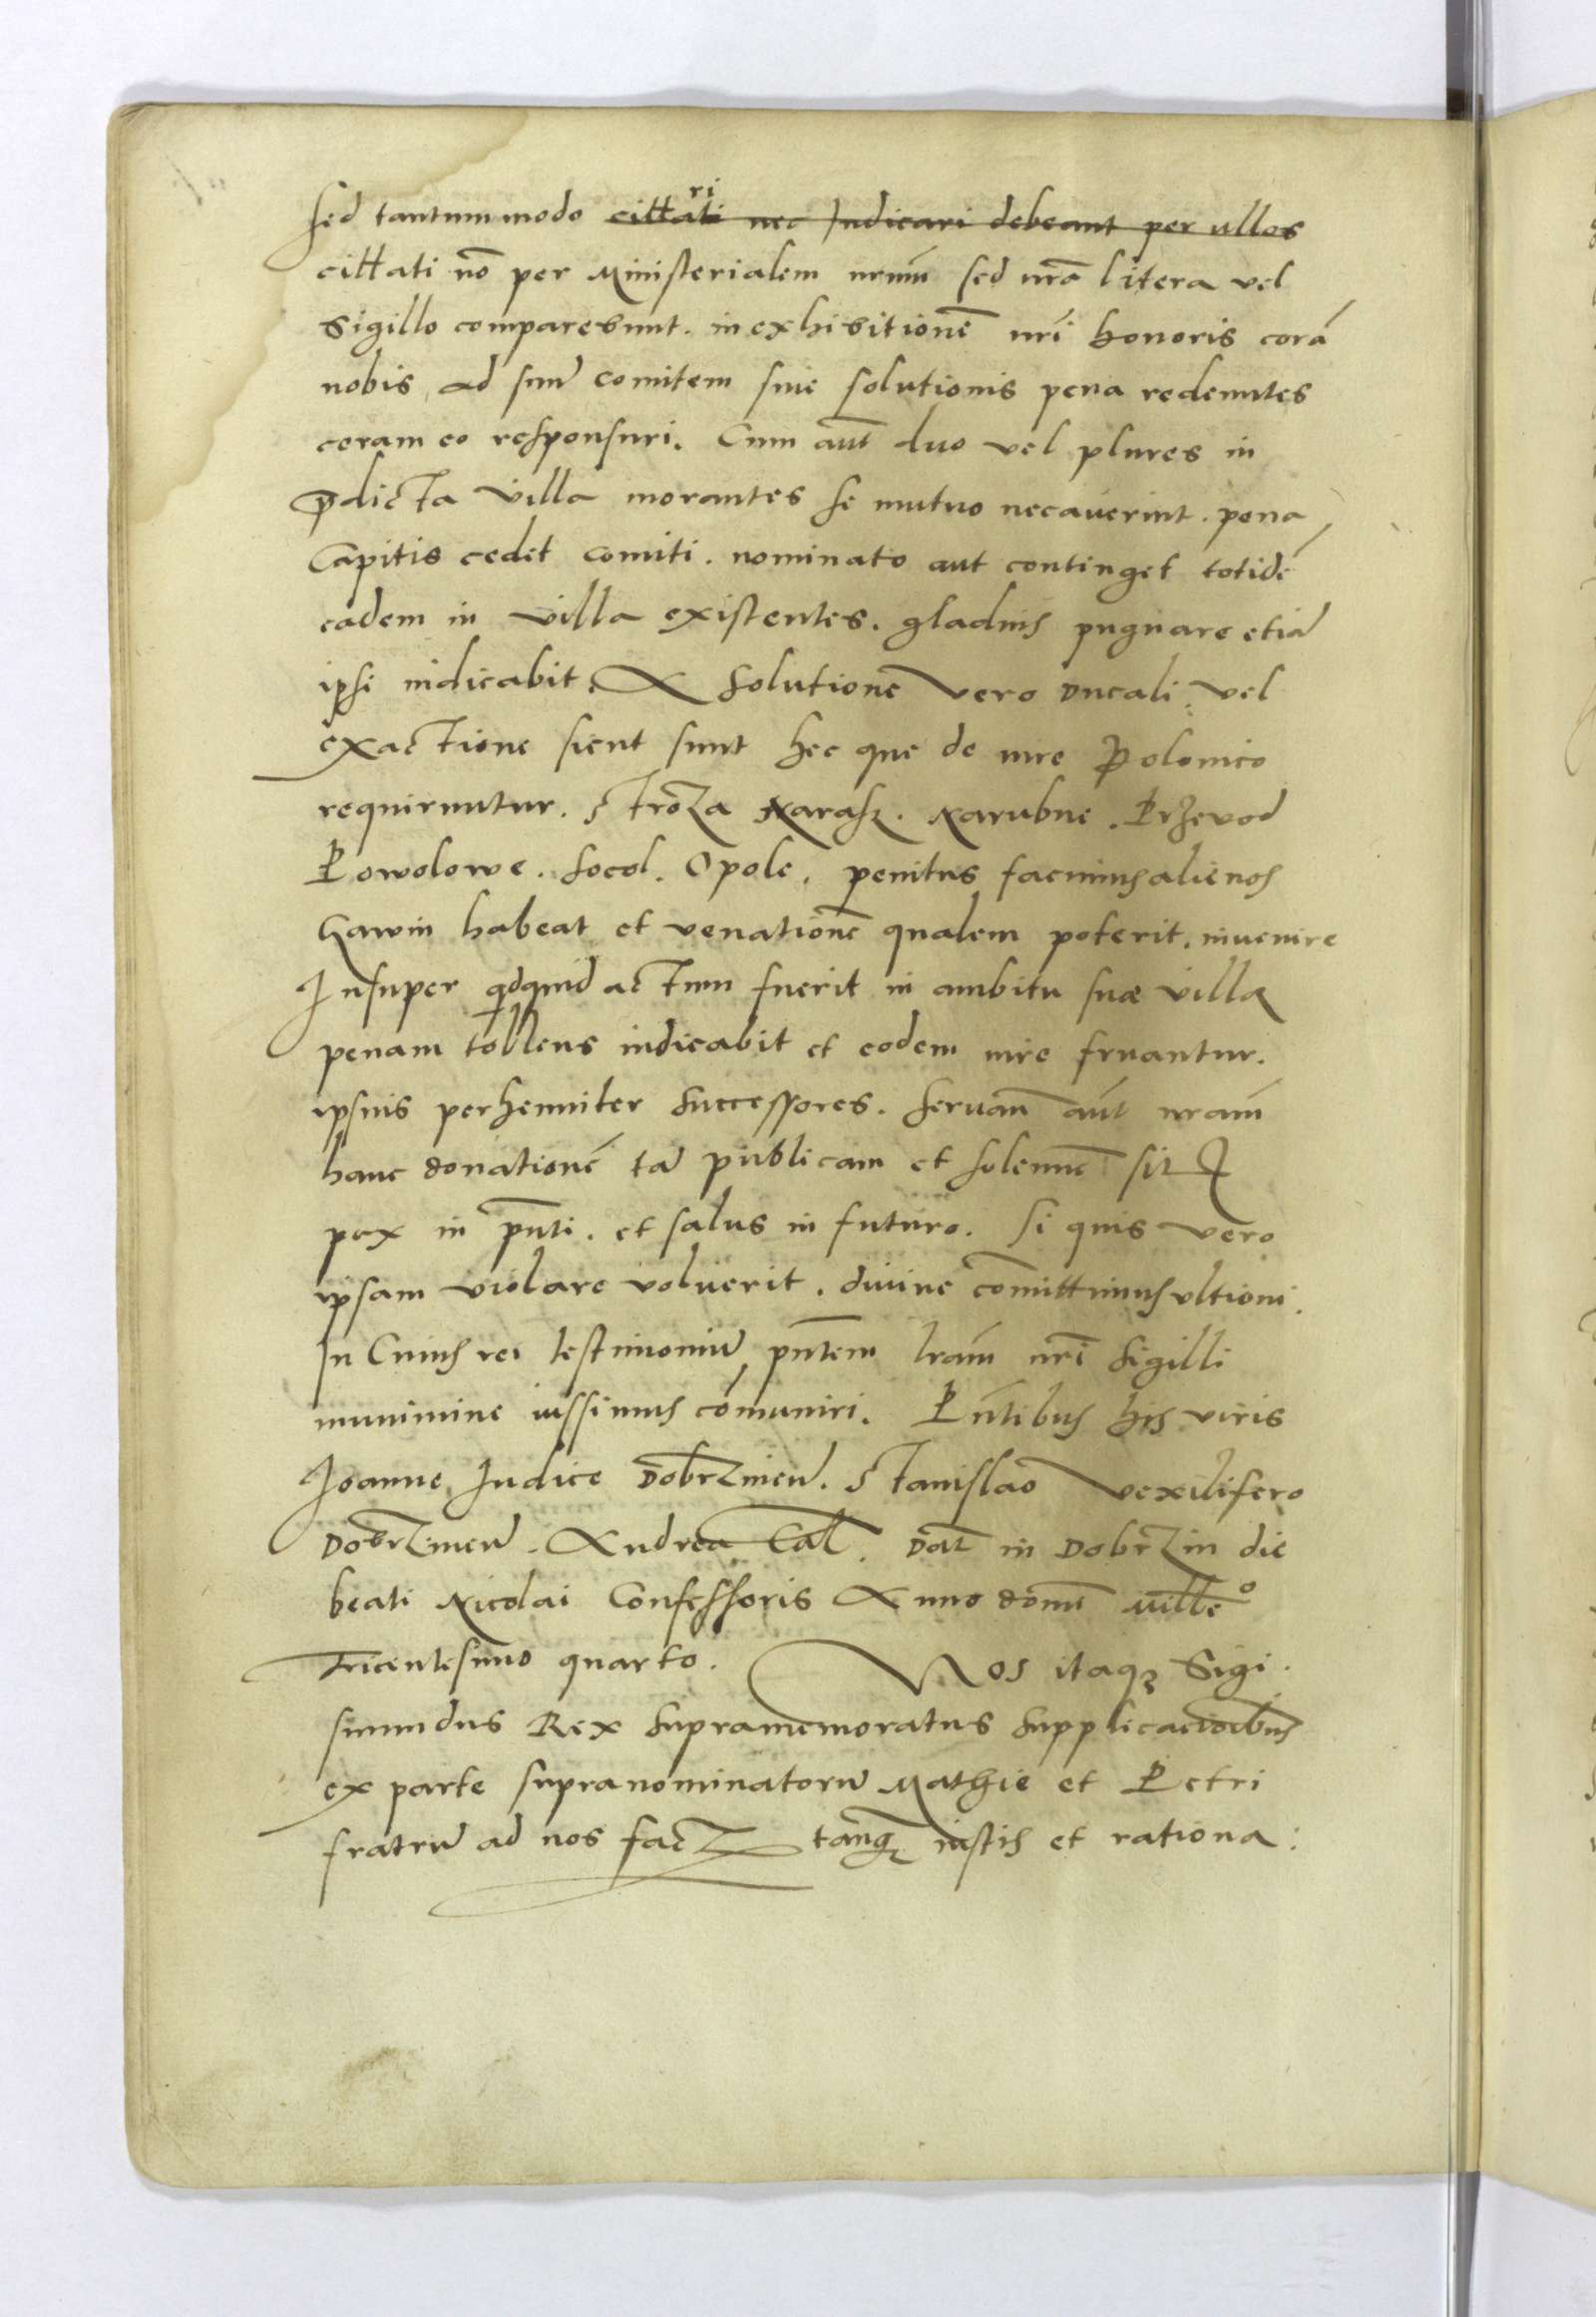 sed tantummodo cittari nec Iudicari debeant per ullos
cittati nō per Ministerialem nrūm sed nrā litera vel
Sigillo comparebunt. in exhibitionē nrī honoris corā
nobis, ad suū comitem sine solutionis pena redeuntes
coram eo responsuri. Cum aūt duo vel plures in
p̄dicta villa morantes se mutuo necauerint. pena
Capitis cedet comiti. nominato aut continget totidē
eadem in villa existentes. gladiis pugnare etiā
ipsi iudicabit. A Solutione vero Ducali. vel
exactione sicut sunt hec que de iure Polonico
requiruntur. Stroza Narasz. Narubne. Przevod
Powolowe. Socol. Opole. penitus facimus alienos
Gawin habeat et venationē qualem poterit. inuenire
Insuper qdquid actum fuerit in ambitu suæ villæ
penam tollens iudicabit et eodem iure fruantur.
ipsius perhenniter Successores. Seruan̄ aūt nrām
hanc donationē tā publicam et solennē sit
pax in p̄nti. et salus in futuro. Si quis vero
ipsam violare voluerit. diuine cōmittimus ultioni.
In Cuius rei testimoniū p̄ntem lrām nrī Sigilli
munimine iussimus cōmuniri. Pn̄tibus his viris
Joanne Iudice Dobrzinen̄. Stanislao Vexilifero
Dobrzinen̄. Andrea Cal̄. Dat̄ in Dobrzin die
beati Nicolai Confessoris Anno domī millē°
Tricentesimo quarto. Nos itaqꝫ Sigi.
smundus Rex Supramemoratus Supplicacioibus
ex parte supranominatorū Mathie et Petri
fratrū ad nos fact̄ tanqꝫ iustis et rationa: